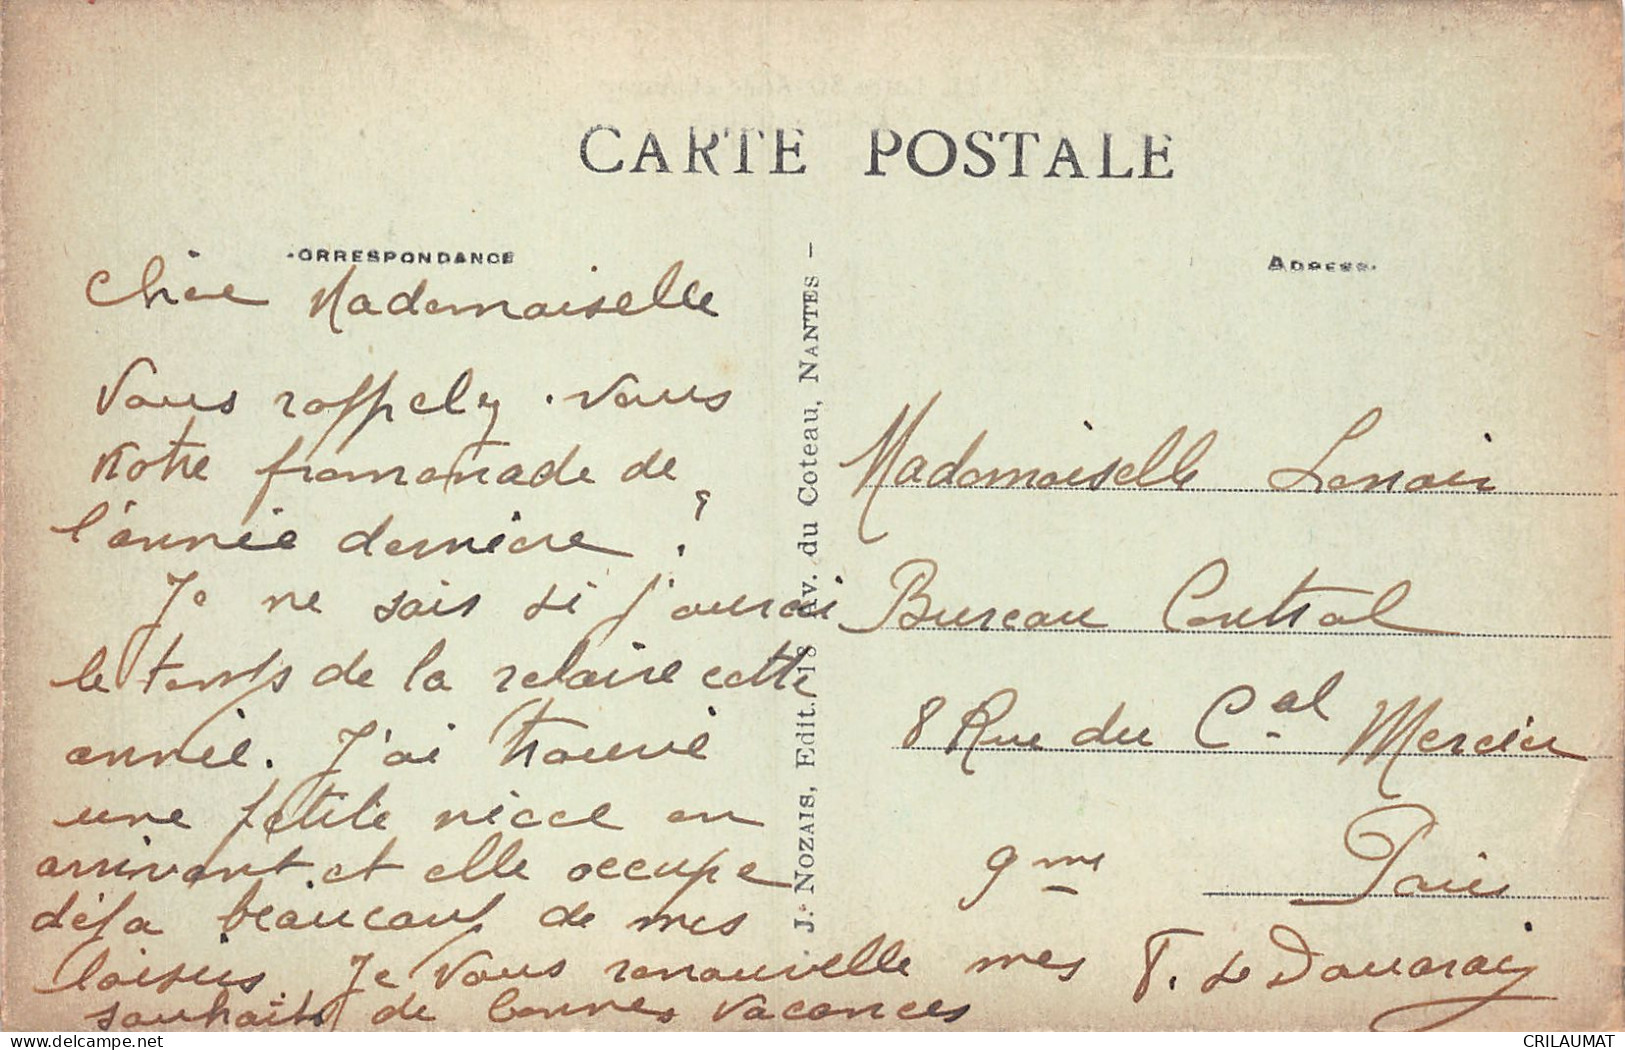 CARTE POSTALE
CORRESPONDANCE
Chère Mademoiselle
Vous rappelez-vous
notre promenade de
l'année dernière ?
Je ne sais si j'aurai
le temps de la refaire cette
année. J'ai trouvé
une petite nièce en
arrivant et elle occupe
déjà beaucoup de mes
loisirs. Je vous renouvelle mes
souhaits de bonnes vacances
J. NOZAIS, Edit., 18 Av. du Coteau, NANTES -
ADRESSE
Mademoiselle Lenoir
Bureau Central
8 Rue du C-al Mercier
9me Paris
T. Le Douaray
delcampe.net
CRILAUMAT